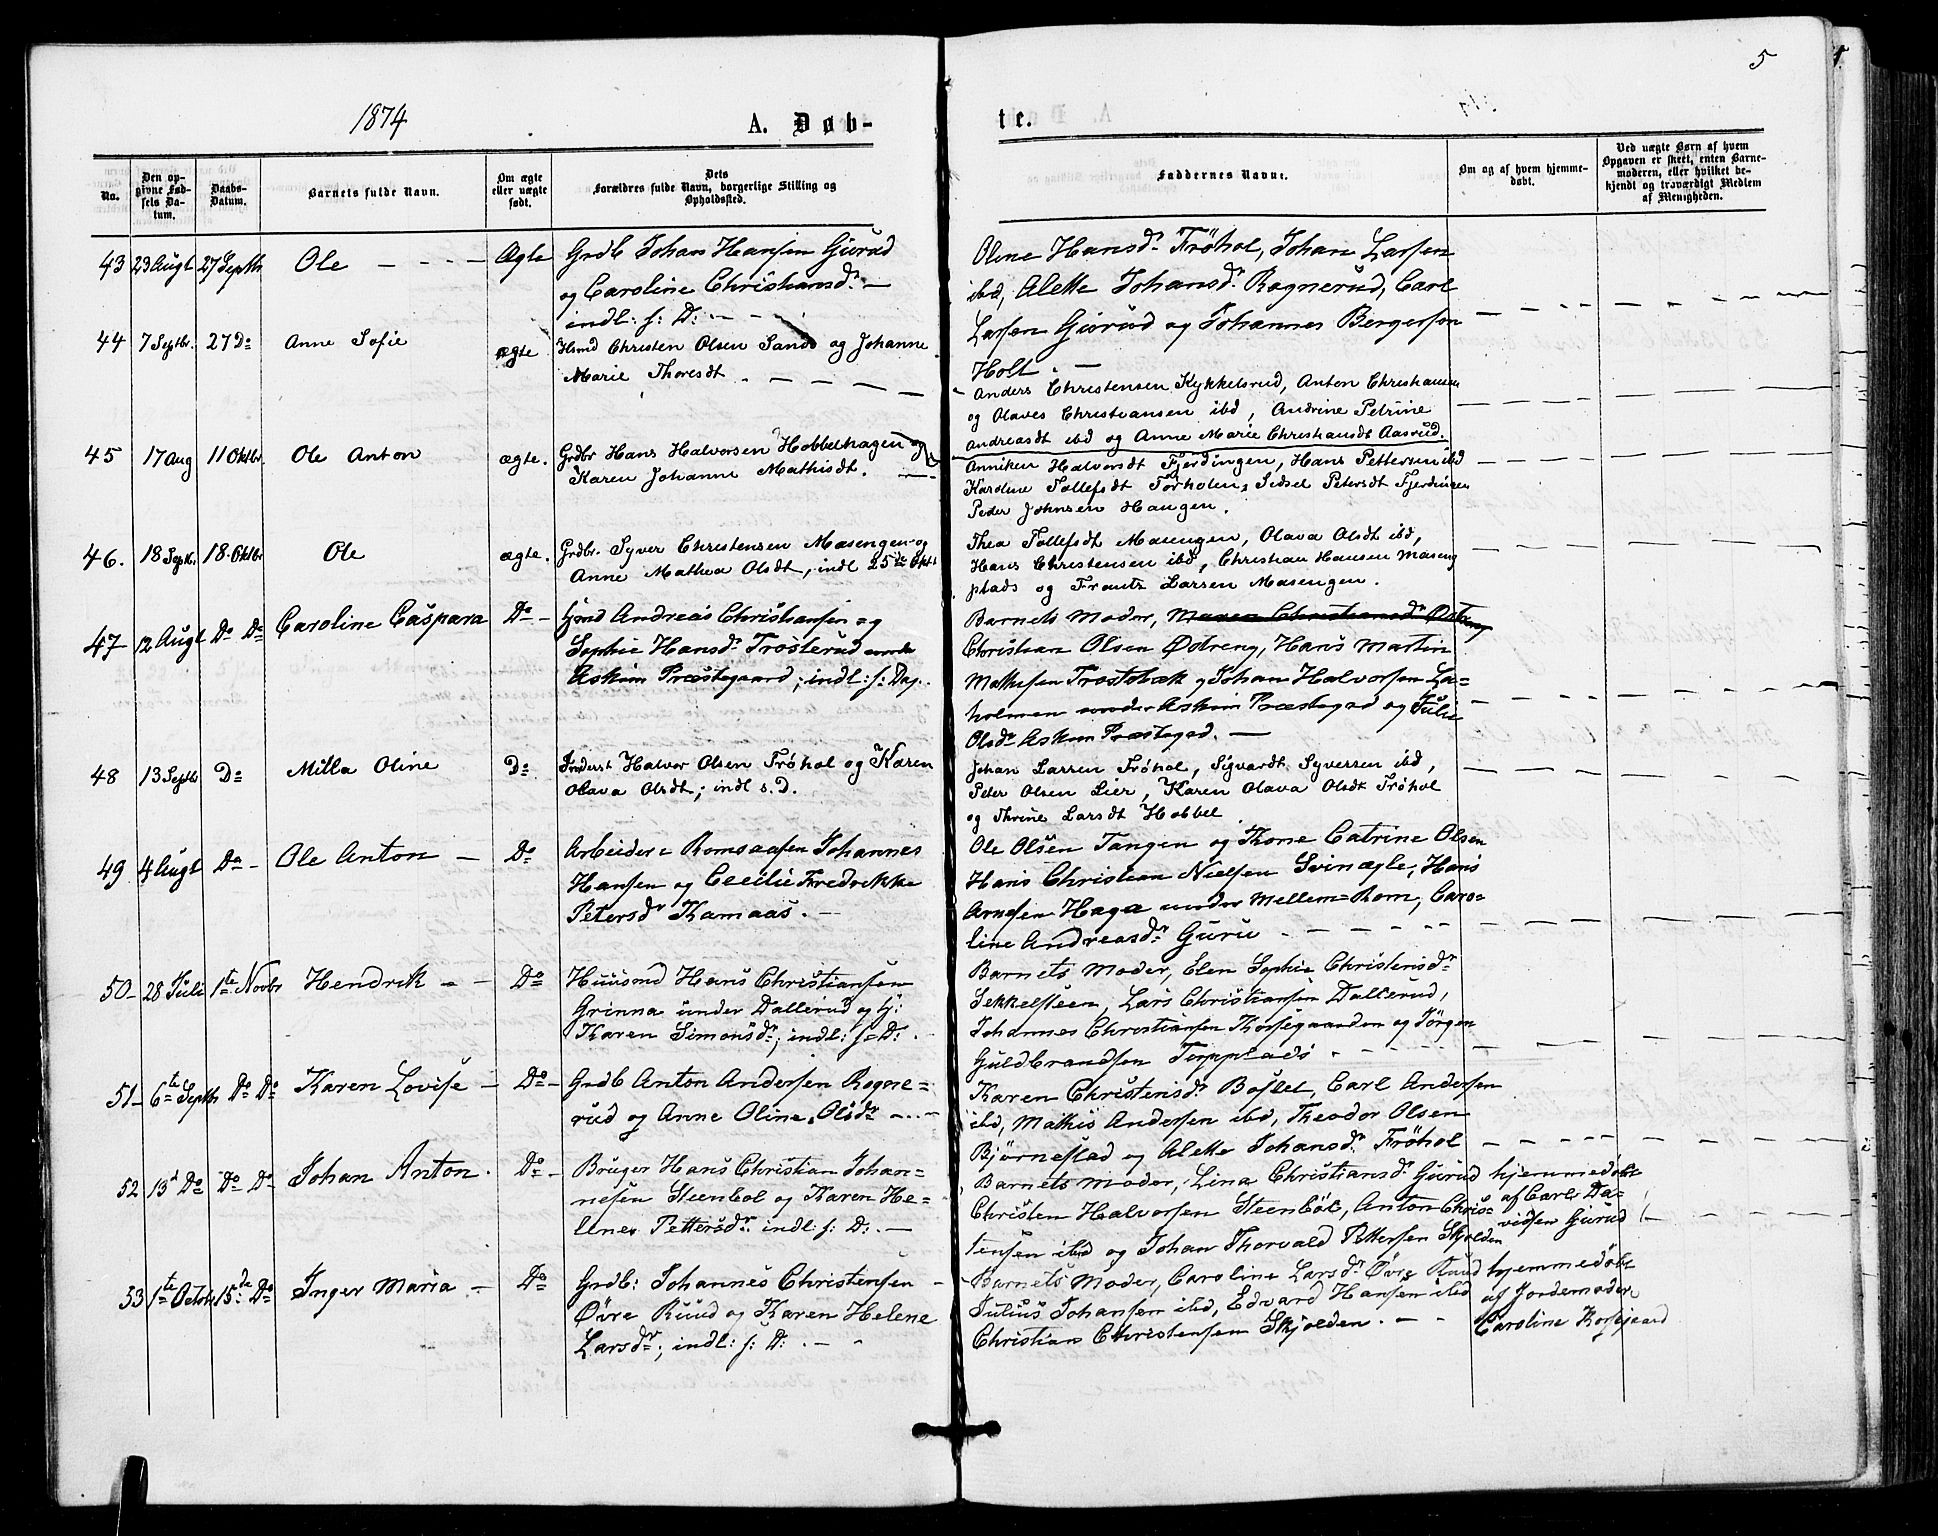 5
1874
A. Døb-
te.
No.
Den op-
givne Fød-
sels Da-
tum.
Daabs-
Datum.
Barnets fulde Navn.
Om ægte
eller uægte
født.
Dets
Forældres fulde Navn, borgerlige Stilling og
Opholdssted.
Faddernes Navne.
Om og af hvem hjemme-
døbt.
Ved uægte Børn af hvem
Opgaven er skeet, enten Barne-
moderen, eller hvilket be-
kjendt og troværdigt Medlem
af Menigheden.
43 23 Augt 27 Septbr Ole Ægte
Grdb Johan Hansen Gjurud
og Caroline Christiansdr
indl: s: D:
Oline Hansdr Frøhol, Johan Larsen
ibd, Alette Johansdr Rognerud, Carl
Larsen Gjurud og Johannes Bergersen
Holt.
44 7 Septbr. 27 Do Anne Sofie ægte
Hsmd Christen Olsen Sand og Johanne
Marie Thoresdt
Anders Christensen Kykkelsrud, Anton Christiansen
og Olaves Christiansen ibd, Andrine Petrine
Andreasdt ibd og Anne Marie Christiansdt Aasrud.
45 17 Aug 11 Oktbr. Ole Anton ægte.
Grdbr Hans Halvorsen Hobbelhagen og
Karen Johanne Mathisdt.
Anniken Halvorsdt Fjerdingen, Hans Pettersen ibd
Karoline Tollefsdt Torholen, Sidsel Petersdt Fjerdingen
Peder Johnsen Haugen.
46. 18 Septbr. 18 Oktbr Ole ægte.
Grdbr. Syver Christensen Masengen og
Anne Mathea Olsdt, indl 25de Oktb
Thea Tollefsdt Masengen, Olava Olsdt ibd,
Hans Christensen ibd, Christian Hansen Maseng
plads og Frantz Larsen Masengen.
47 12 Augt Do Do Caroline Caspara Do
Hsmd Andreas Christiansen og
Sophie Hansdr Trosterud under
Askim Præstegaard; indl: s: Dag.
Barnets Moder, Maren Christiansdr Østreng
Christian Olsen Østreng, Hans Martin
Mathisen Trostebæk og Johan Halvorsen La-
holmen under Askim Præstegrd og Julie
Olsdr Askim Præstegrd.
48 13 Septbr Do Milla Oline Do
Inderst Halvor Olsen Frøhol og Karen
Olava Olsdt; indl s. D.
Johan Larsen Frøhol, Sigvardt Syversen ibd,
Peter Olsen Lier, Karen Olava Olsdt Frøhol
og Thrine Larsdt Hobbel
49 4 Augt Do Ole Anton Do
Arbeider Romsaasen Johannes
Hansen og Cecilie Fredrikke
Petersdr Kamaas.
Ole Olsen Tangen og Kone Catrine Olsen
Hans Christian Nielsen Svinægle, Hans
Arnesen Haga under Mellem-Rom, Caro-
line Andreasdr Guru
50 28 Juli 1te Novbr Hendrik Do
Huusmd Hans Christiansen
Grinna under Dallerud og Hj:
Karen Simonsdr; indl: s: D:
Barnets Moder, Elen Sophie Christensdr
Sekkelsteen, Lars Christiansen Dallerud,
Johannes Christiansen Korsegaarden og Jørgen
Guldbrandsen Topplads
51 6te Septbr Do Do Karen Lovise Do
Grdb Anton Andersen Rogne-
rud og Anne Oline Olsdr
Karen Christensdr Boslet, Carl Andersen
ibd, Mathis Andersen ibd, Theodor Olsen
Bjørnestad og Alette Johansdr Frøhol
52 13d Do Do Do Johan Anton. Do
Bruger Hans Christian Johan-
nesen Steenbøl og Karen He-
lene Pettersdr indl: s: D:
Barnets Moder, Lina Christiansdr Gurud
Christen Halvorsen Steenbøl, Anton Chris-
tensen ibd og Johan Thorvald Pettersen Skjolden
hjemmedøbt
af Carl Da-
vidsen Gjurud
53 1te Octobr 15de Do Inger Maria Do
Grdb: Johannes Christensen
Øvre Ruud og Karen Helene
Larsdr; indl: s: D:
Barnets Moder, Caroline Larsdr Øvre Ruud
Julius Johansen ibd, Edvard Hansen ibd
Christian Christensen Skjolden.
hjemmedøbt
af Jordemoder
Caroline Korsegaard